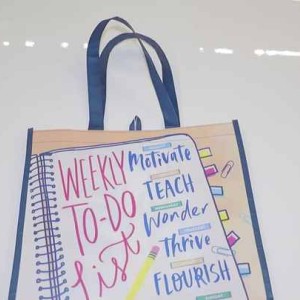 WEEKLY
TO-DO
list
Motivate
TEACH
Wonder
Thrive
FLOURISH